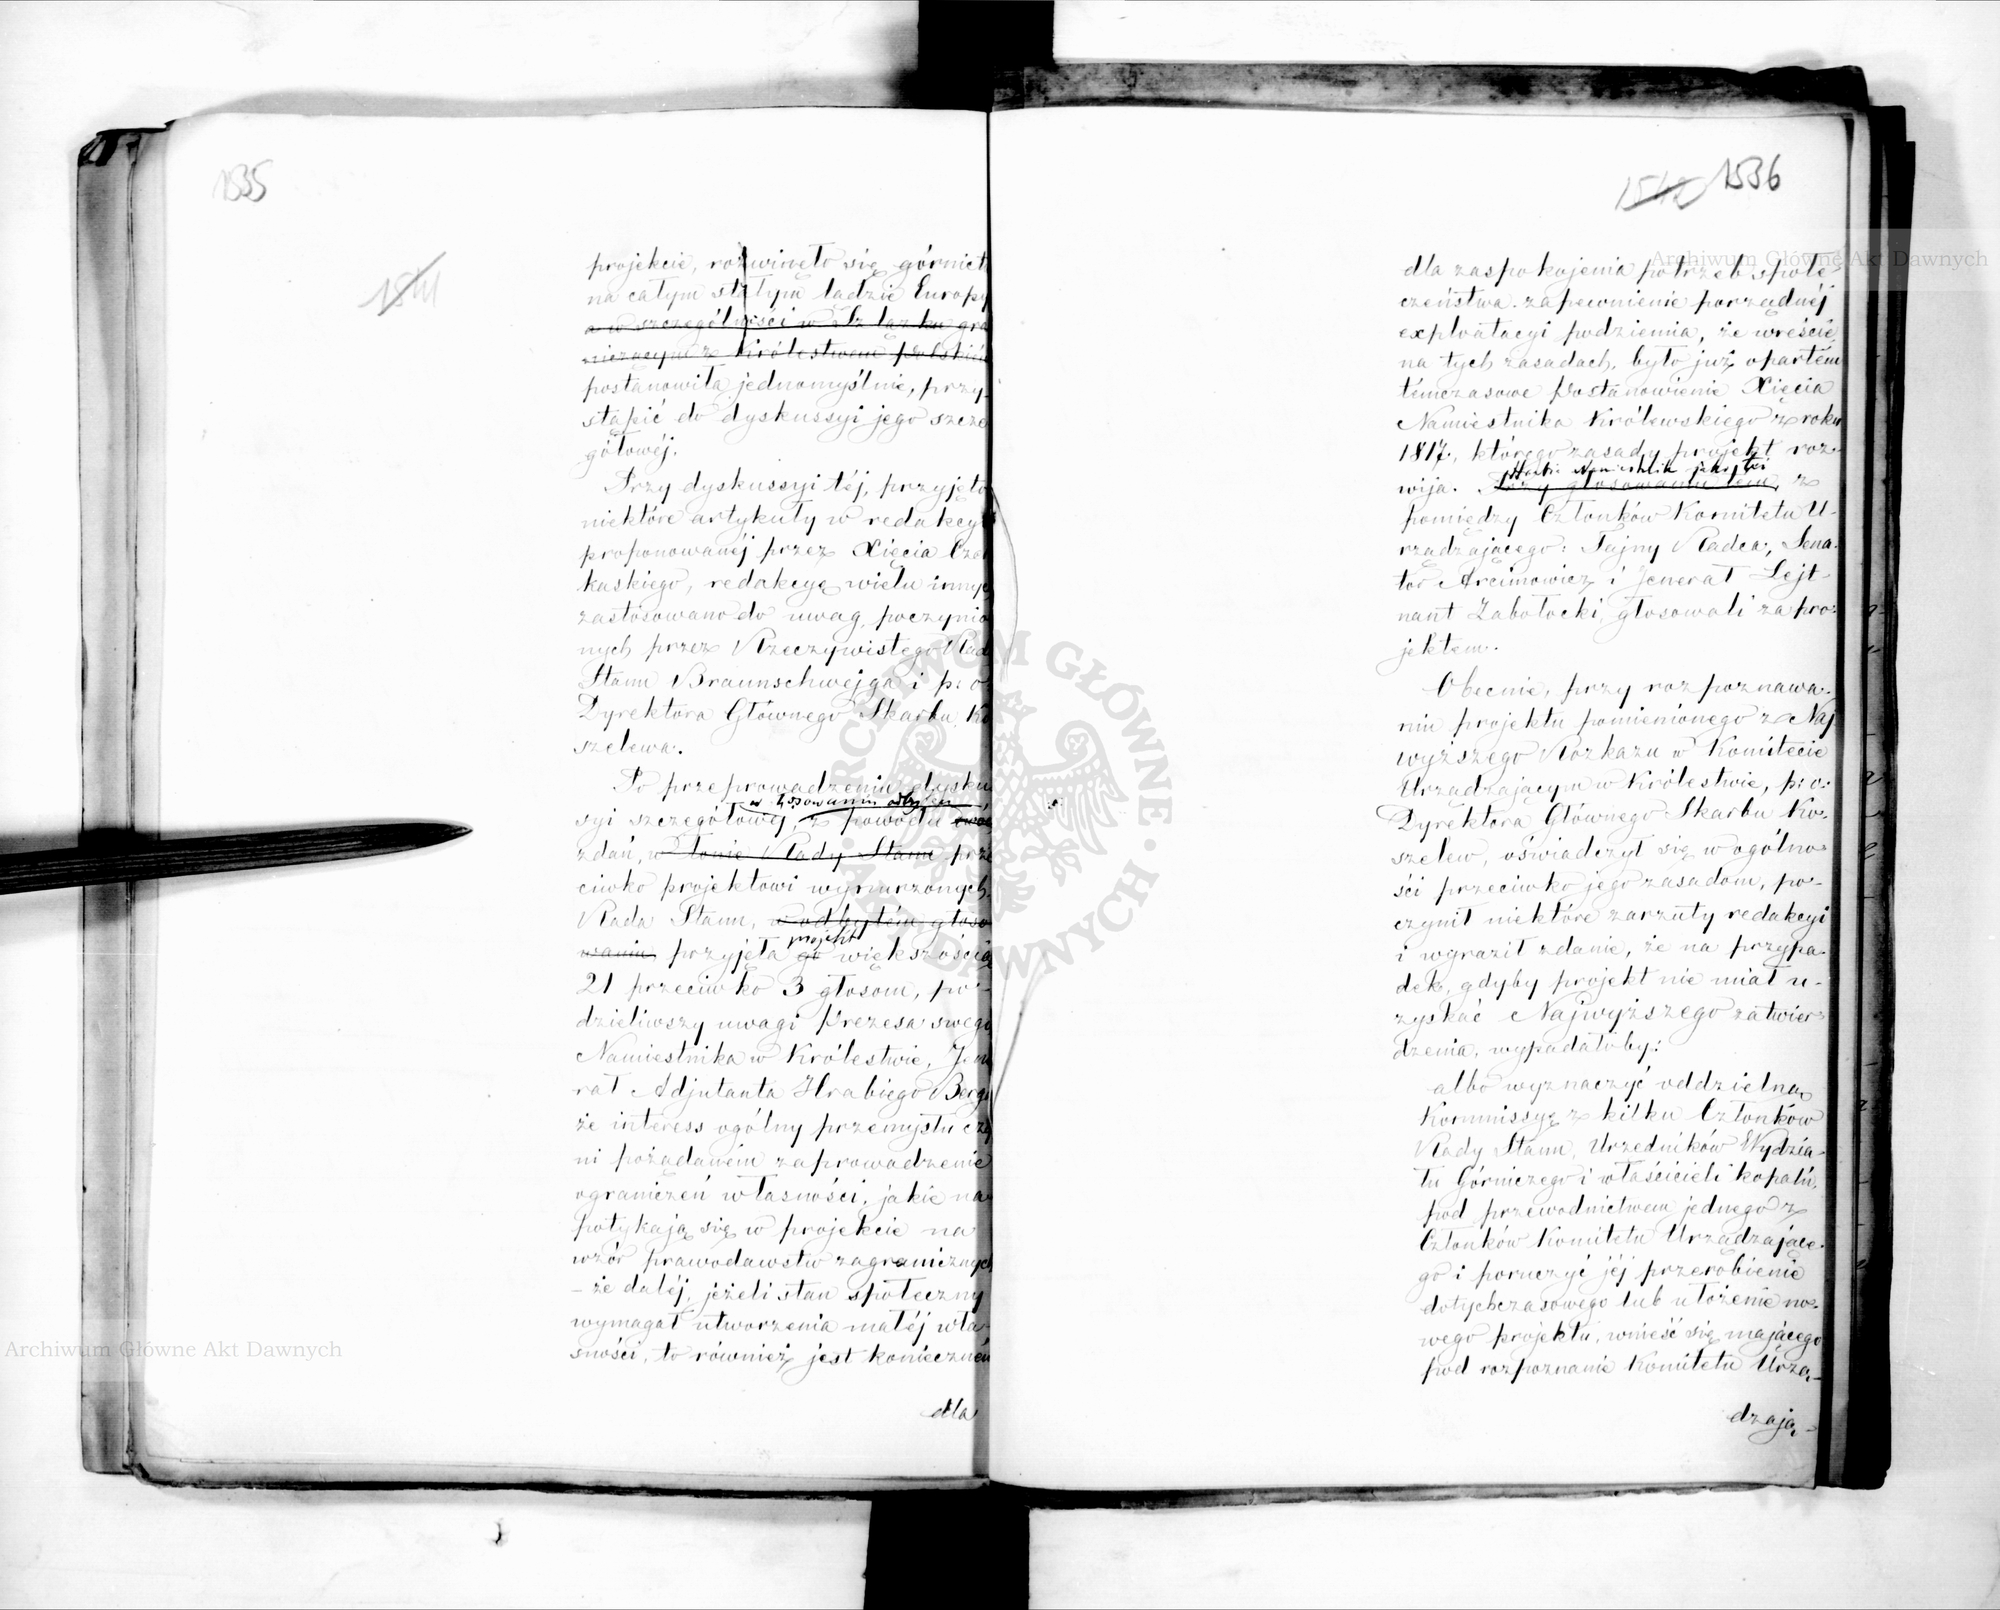 1535
1541
projekcie, rozwinęło się górnict
na całym stałym lądzie Europy
a w szczególności w Szlązku gra
niczącym z Królestwem polskiém
postanowiła jednomyślnie, przy-
stąpić do dyskussyi jego szcze
gółowéj.
Przy dyskussyi téj, przyjęto
niektóre artykuły w redakcyi
proponowanéj przez Xięcia Czer
kaskiego, redakcyę wielu innych
zastósowano do uwag, poczynio
nych przez Rzeczywistego Rad
Stanu Braunschwejga i p: o:
Dyrektora Głównego Skarbu Ko
szelewa.
Po przeprowadzeniu dysku
w głosowaniu odbytem
syi szczegółowéj, z powodu
zdań, w łonie Rady Stanu prze
ciwko projektowi wynurzonych,
Rada Stanu, w odbytém głoso
projekt
waniu, przyjęła go większością
21 przeciwko 3 głosom, po-
dzieliwszy uwagi Prezesa swego
Namiestnika w Królestwie, Jene
rał Adjutanta Hrabiego Berga
że interess ogólny przemysłu czy
ni pożądanem zaprowadzenie
ograniczeń własności, jakie na
potykają się w projekcie na
wzór prawodawstw zagranicznych
– że daléj, jeżeli stan społeczny
wymagał utworzenia małéj wła-
sności, to również jest konieczném
dla
1542 1536
dla zaspokojenia potrzeb społe-
czeństwa zapewnienie porządnéj
exploatacyi podziemia, że wreście,
na tych zasadach, było już opartém
témczasowe Postanowienie Xięcia
Namiestnika Królewskiego z roku
1817, którego zasady projekt roz-
Hrabia Namiestnik jako też
wija. Przy głosowaniu tém, z
pomiędzy Członków Komitetu U-
rządzającego: Tajny Radca, Sena-
tor Arcimowicz i Jenerał Lejt-
nant Zabołocki, głosowali za pro-
jektem.
Obecnie, przy rozpoznawa-
niu projektu pomienionego z Naj
wyższego Rozkazu w Komitecie
Urządzającym w Królestwie, p: o:
Dyrektora Głównego Skarbu Ko-
szelew, oświadczył się w ogólno-
ści przeciwko jego zasadom, po-
czynił niektóre zarzuty redakcyi
i wyraził zdanie, że na przypa-
dek, gdyby projekt nie miał u-
zyskać Najwyższego zatwier-
dzenia, wypadałoby:
albo wyznaczyć oddzielną
Kommissyę z kilku Członków
Rady Stanu, Urzędników Wydzia-
łu Górniczego i właścicieli kopalń,
pod przewodnictwem jednego z
Członków Komitetu Urządzające-
go i poruczyć jéj przerobienie
dotychczasowego lub ułożenie no-
wego projektu, wnieść się mającego
pod rozpoznanie Komitetu Urzą-
dzają-
Archiwum Główne Akt Dawnych
Archiwum Główne Akt Dawnych
ARCHIWUM GŁÓWNE · AKT DAWNYCH ·